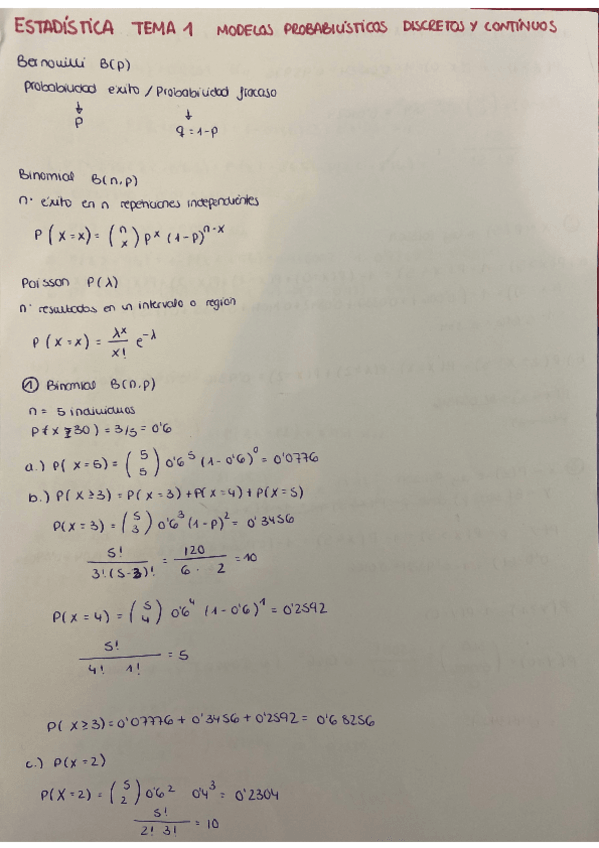 ESTADÍSTICA TEMA 1 MODELOS PROBABILÍSTICOS DISCRETOS Y CONTÍNUOS
Bernouilli B(p)
Probabilidad éxito / Probabilidad fracaso
↓ ↓
p q = 1-p
Binomial B(n,p)
nº éxito en n repeticiones independientes
P(X=x) = (n x) p^x (1-p)^n-x
Poisson P(λ)
nº resultados en un intervalo o región
P(X=x) = λ^x / x! e^-λ
① Binomial B(n,p)
n = 5 individuos
P(x ≥ 30) = 3/5 = 0'6
a.) P(X=5) = (5 5) 0'6^5 (1-0'6)^0 = 0'0776
b.) P(X≥3) = P(X=3) + P(X=4) + P(X=5)
P(X=3) = (5 3) 0'6^3 (1-p)^2 = 0'3456
5! / 3!(5-3)! = 120 / 6 · 2 = 10
P(X=4) = (5 4) 0'6^4 (1-0'6)^1 = 0'2592
5! / 4! 1! = 5
P(X≥3) = 0'07776 + 0'3456 + 0'2592 = 0'68256
c.) P(X=2)
P(X=2) = (5 2) 0'6^2 0'4^3 = 0'2304
5! / 2! 3! = 10